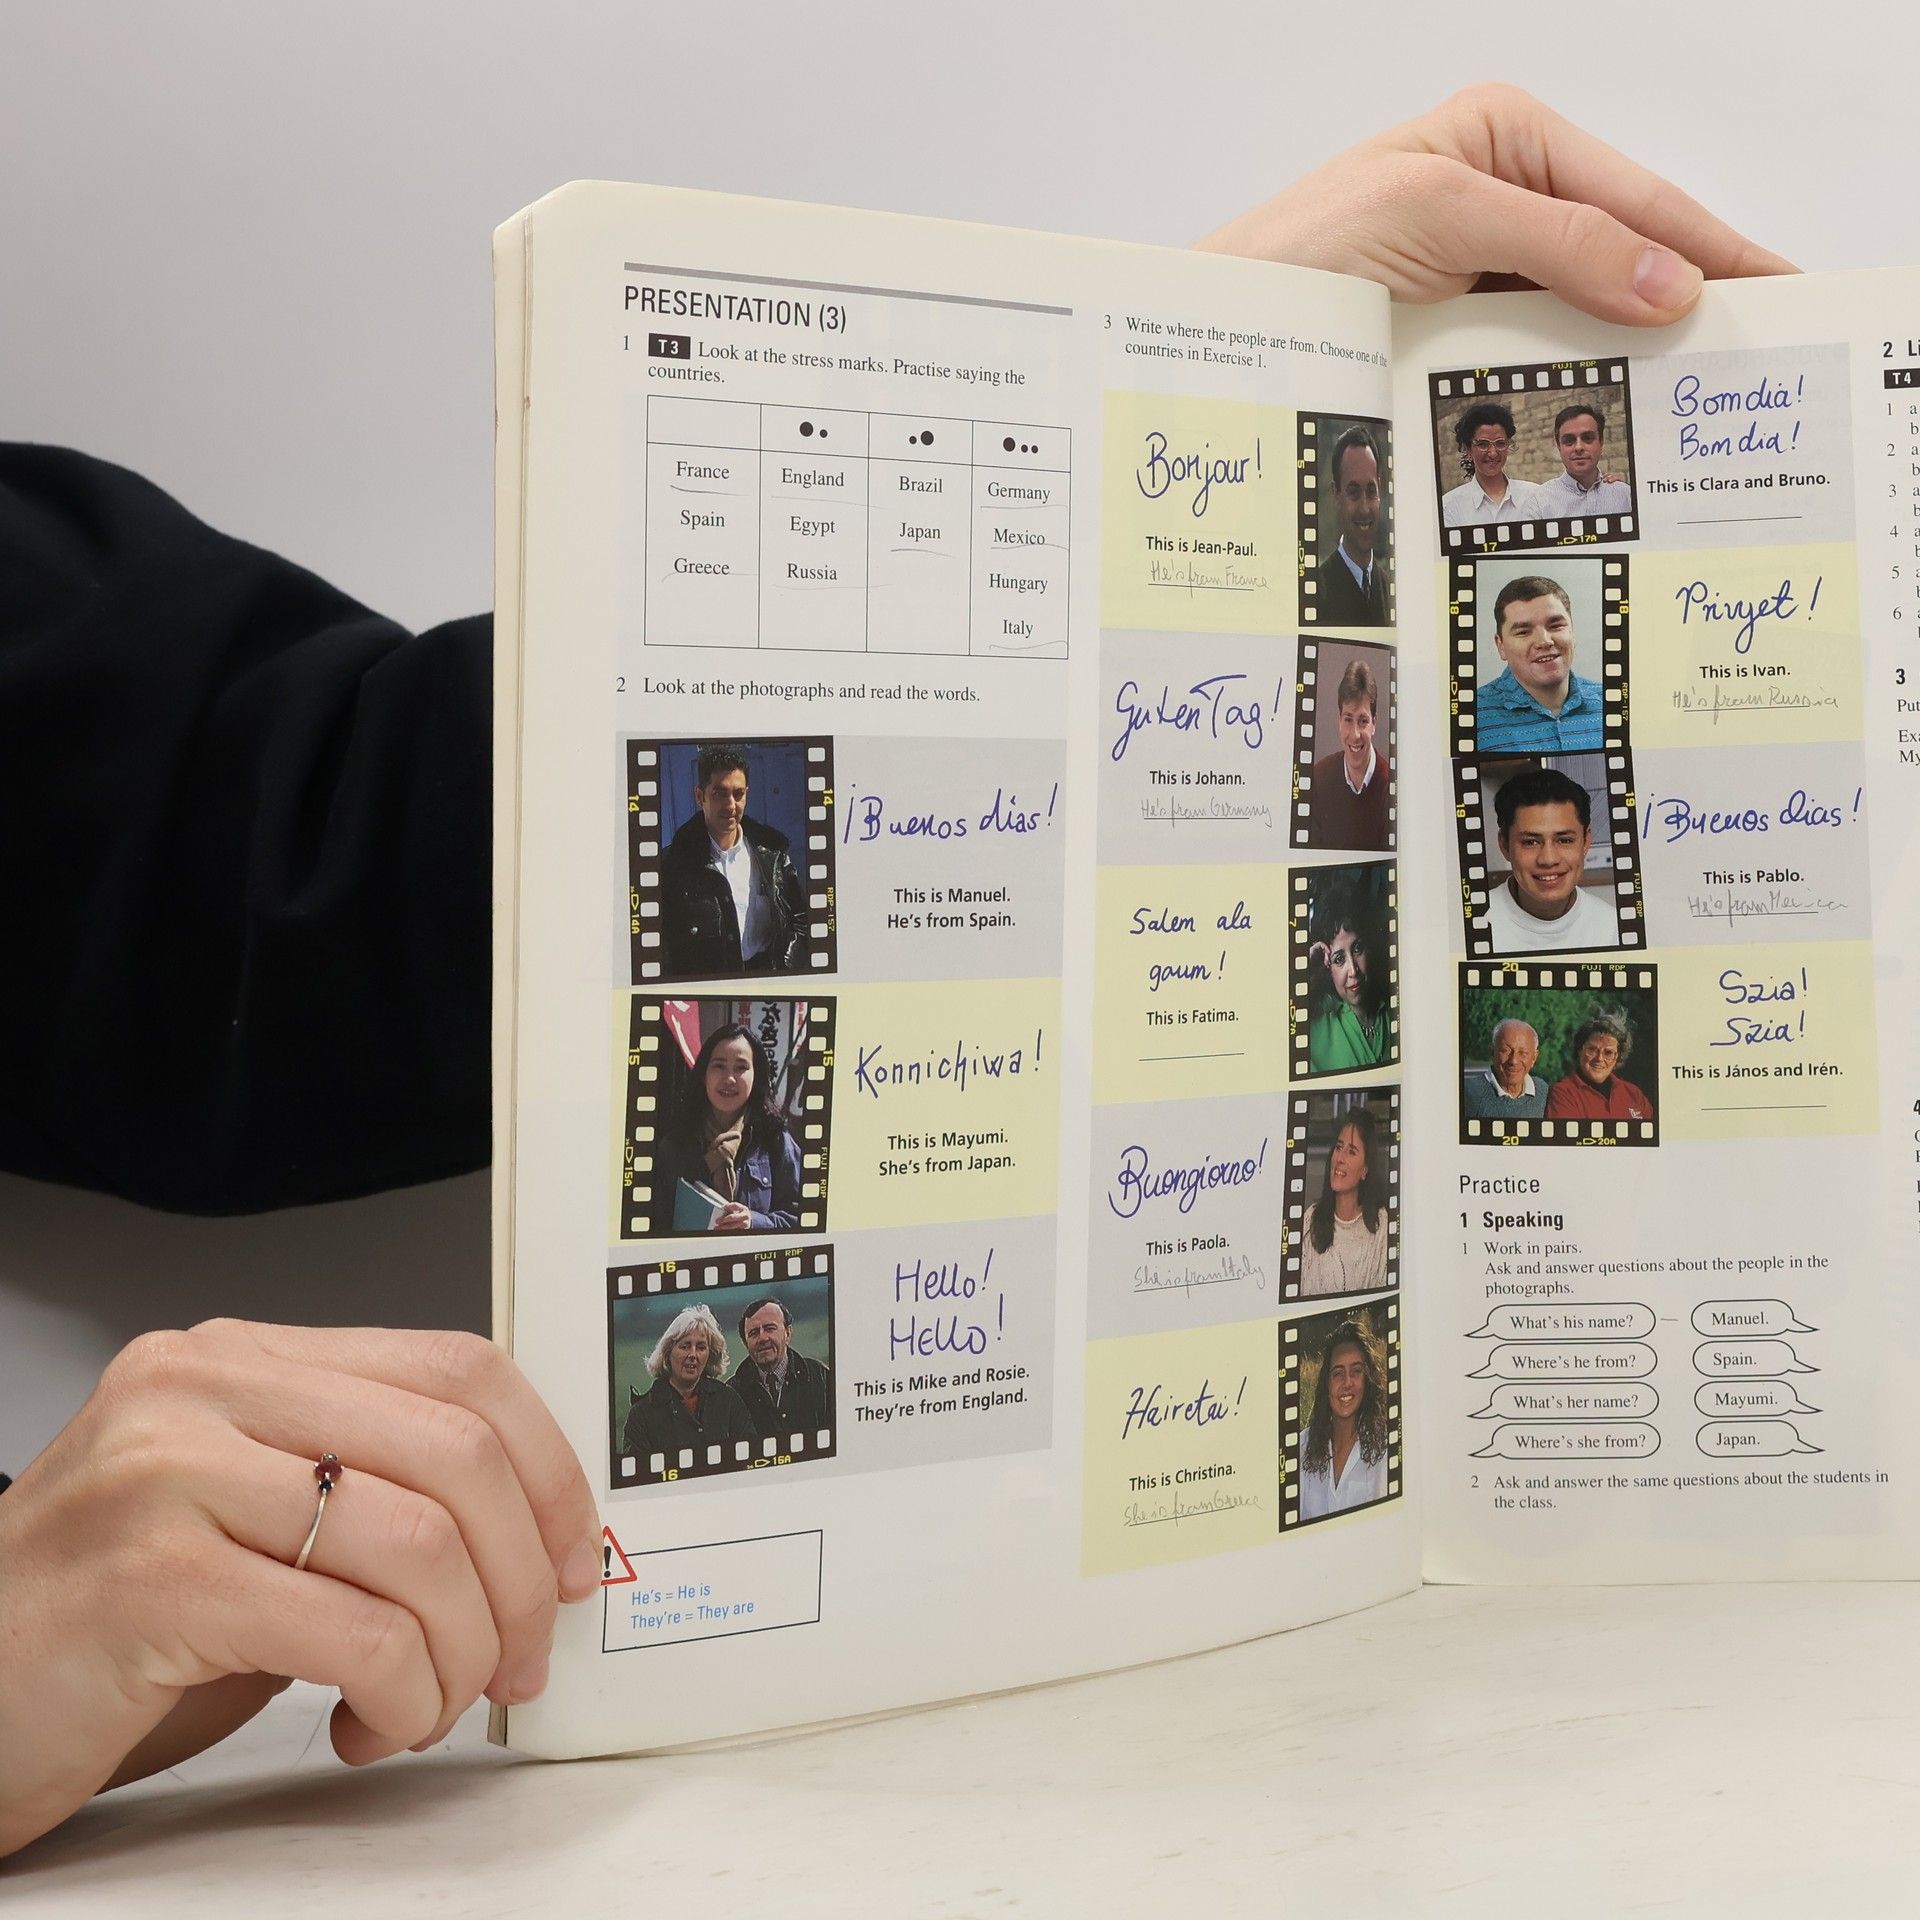 PRESENTATION (3)
1 T 3 Look at the stress marks. Practise saying the
countries.
France England Brazil Germany
Spain Egypt Japan Mexico
Greece Russia Hungary
Italy
2 Look at the photographs and read the words.
14 14
14A RDP-157
¡Buenos dias!
This is Manuel.
He's from Spain.
15 15
15A FUJI RDP
Konnichiwa!
This is Mayumi.
She's from Japan.
16 FUJI RDP
16 16A
Hello!
Hello!
This is Mike and Rosie.
They're from England.
!
He's = He is
They're = They are
3 Write where the people are from. Choose one of the
countries in Exercise 1.
Bonjour!
This is Jean-Paul.
He's from France
Guten Tag!
This is Johann.
He's from Germany
Salem ala
gaum!
This is Fatima.
Buongiorno!
This is Paola.
She is from Italy
Hairetai!
This is Christina.
She is from Greece
17 FUJI RDP
17 17A
Bom dia!
Bom dia!
This is Clara and Bruno.
18 18
18A RDP-157
Privyet!
This is Ivan.
He's from Russia
19 19
19A FUJI RDP
¡Buenos dias!
This is Pablo.
He's from
20 FUJI RDP
20 20A
Szia!
Szia!
This is János and Irén.
Practice
1 Speaking
1 Work in pairs.
Ask and answer questions about the people in the
photographs.
What's his name? Manuel.
Where's he from? Spain.
What's her name? Mayumi.
Where's she from? Japan.
2 Ask and answer the same questions about the students in
the class.
2
T 4
1 a
b
2 a
b
3 a
b
4 a
b
5 a
b
6
3
Put
My